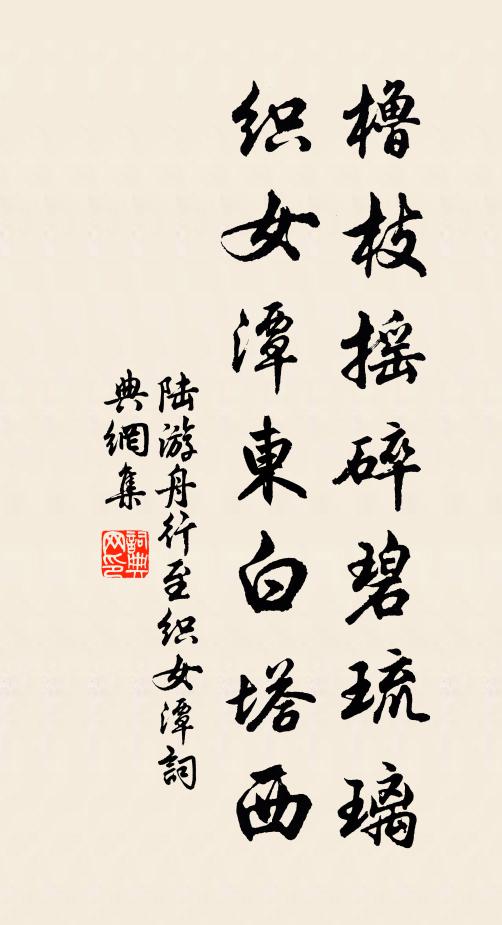 橹枝摇碎碧琉璃
织女潭東白塔西
陆游舟行至织女潭詞
典網集
詞典网印